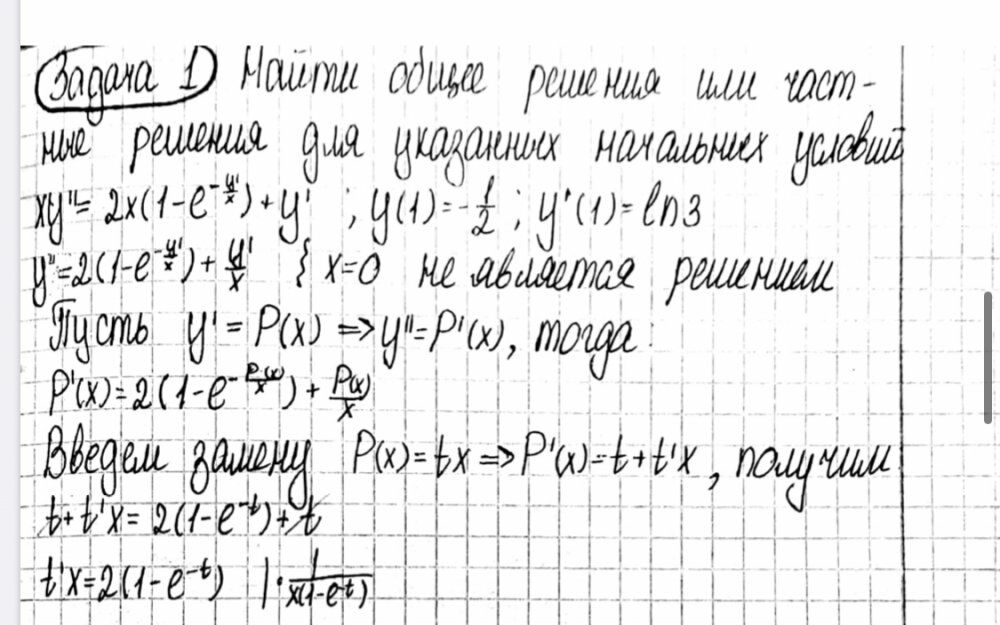 Задача 1) Найти общее решения или част-
ные решения для указанных начальных условий
xy''= 2x(1-e^{-\frac{y'}{x}})+y' ; y(1)=-\frac{1}{2} ; y'(1)=ln3
y''=2(1-e^{-\frac{y'}{x}})+\frac{y'}{x} { x=0 не является решением
Пусть y'=P(x) => y''=P'(x), тогда:
P'(x)=2(1-e^{-\frac{P(x)}{x}})+\frac{P(x)}{x}
Введем замену P(x)=tx => P'(x)=t+t'x, получим
t+t'x=2(1-e^{-t})+t
t'x=2(1-e^{-t}) |·\frac{1}{x(1-e^{-t})}